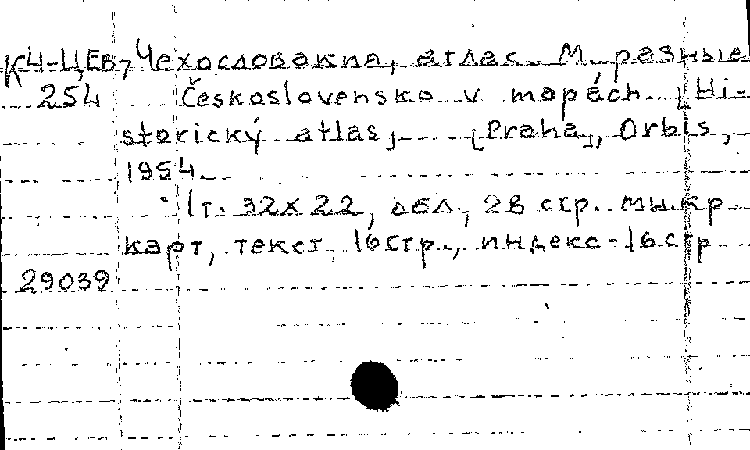 КЧ-ЦЕВ, Чехословакиа, атлас. М. разные
254 Československo v mapách. [Hi-
storický atlas] [Praha], Orbis,
1954
1т. 32х22, обл, 28 стр. мн.кр
карт, текст 16 стр., индекс-16 стр
29039